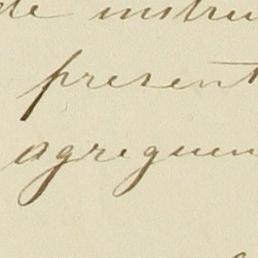 de instru
present
agreguen